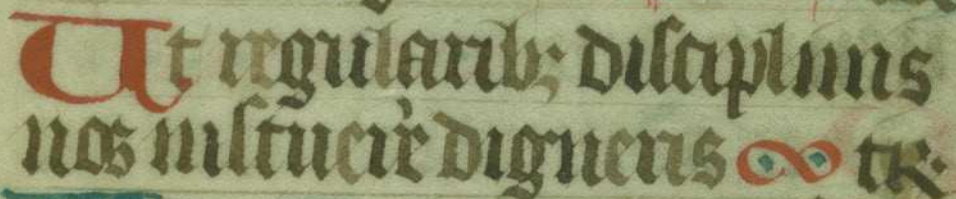 Ut regularib; disciplinis
nos instruere digneris te r